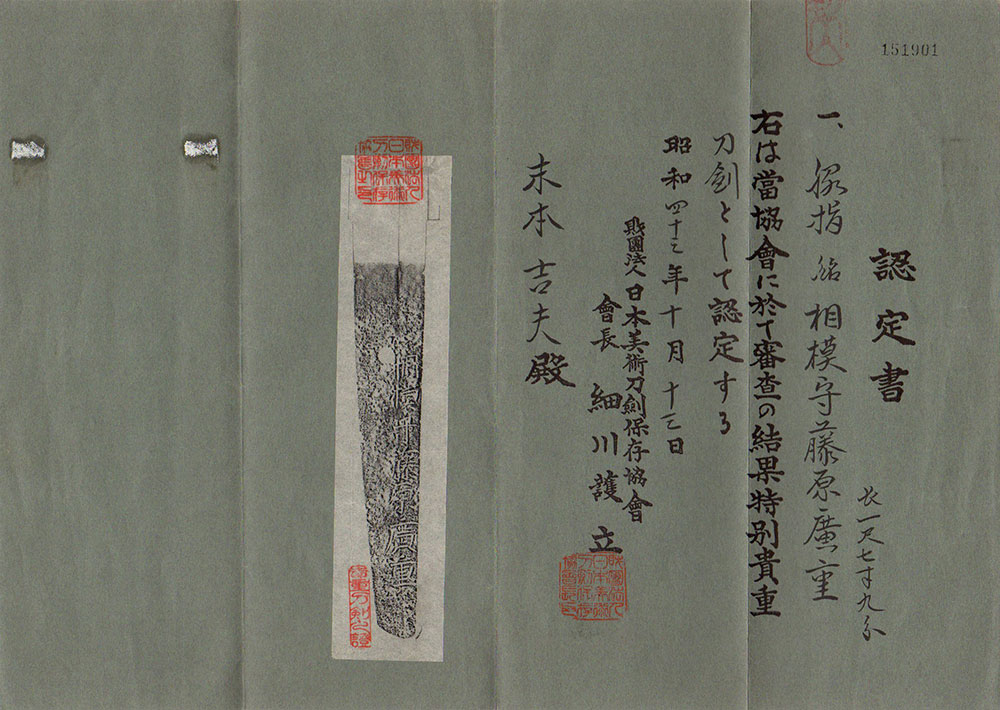 151901
認定書
一、脇指 銘 相模守藤原廣重
長一尺七寸九分
右は當協會に於て審査の結果特別貴重
刀劍として認定する
昭和四十三年十月十三日
財團法人日本美術刀劍保存協會
會長 細川護立
末本吉夫殿
相模守藤原廣重